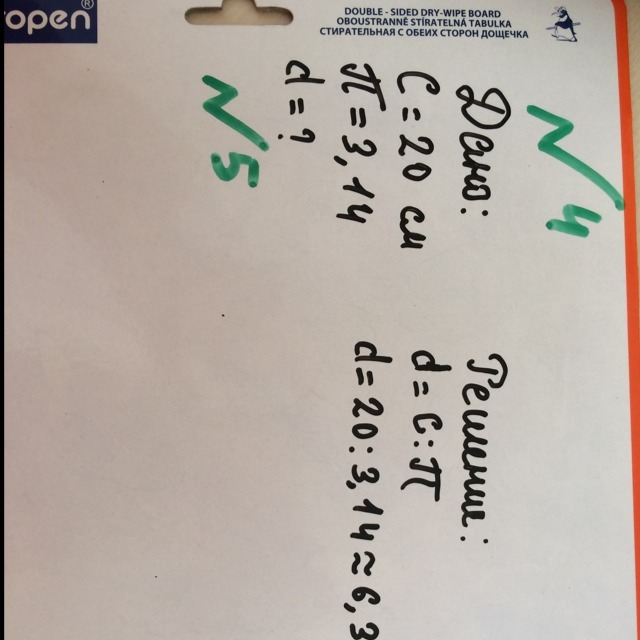 open®
DOUBLE - SIDED DRY-WIPE BOARD
OBOUSTRANNÉ STÍRATELNÁ TABULKA
СТИРАТЕЛЬНАЯ С ОБЕИХ СТОРОН ДОЩЕЧКА
N 4
Дано:
C = 20 см
П = 3,14
d = ?
Решение:
d = C : П
d = 20 : 3,14 ≈ 6,3
N 5